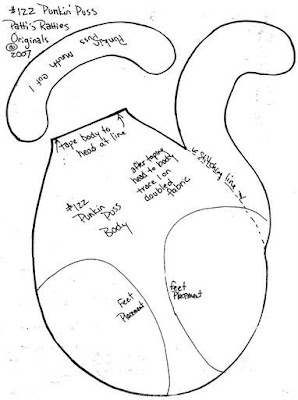 #122 Punkin' Puss
Patti's Ratties
Originals
© 2007
Punkin Puss mouth cut 1
tape body to
head at line
after taping
head to body
trace 1 on
doubled
fabric
stitching line
#122
Punkin
Puss
Body
feet
Placement
feet
Placement